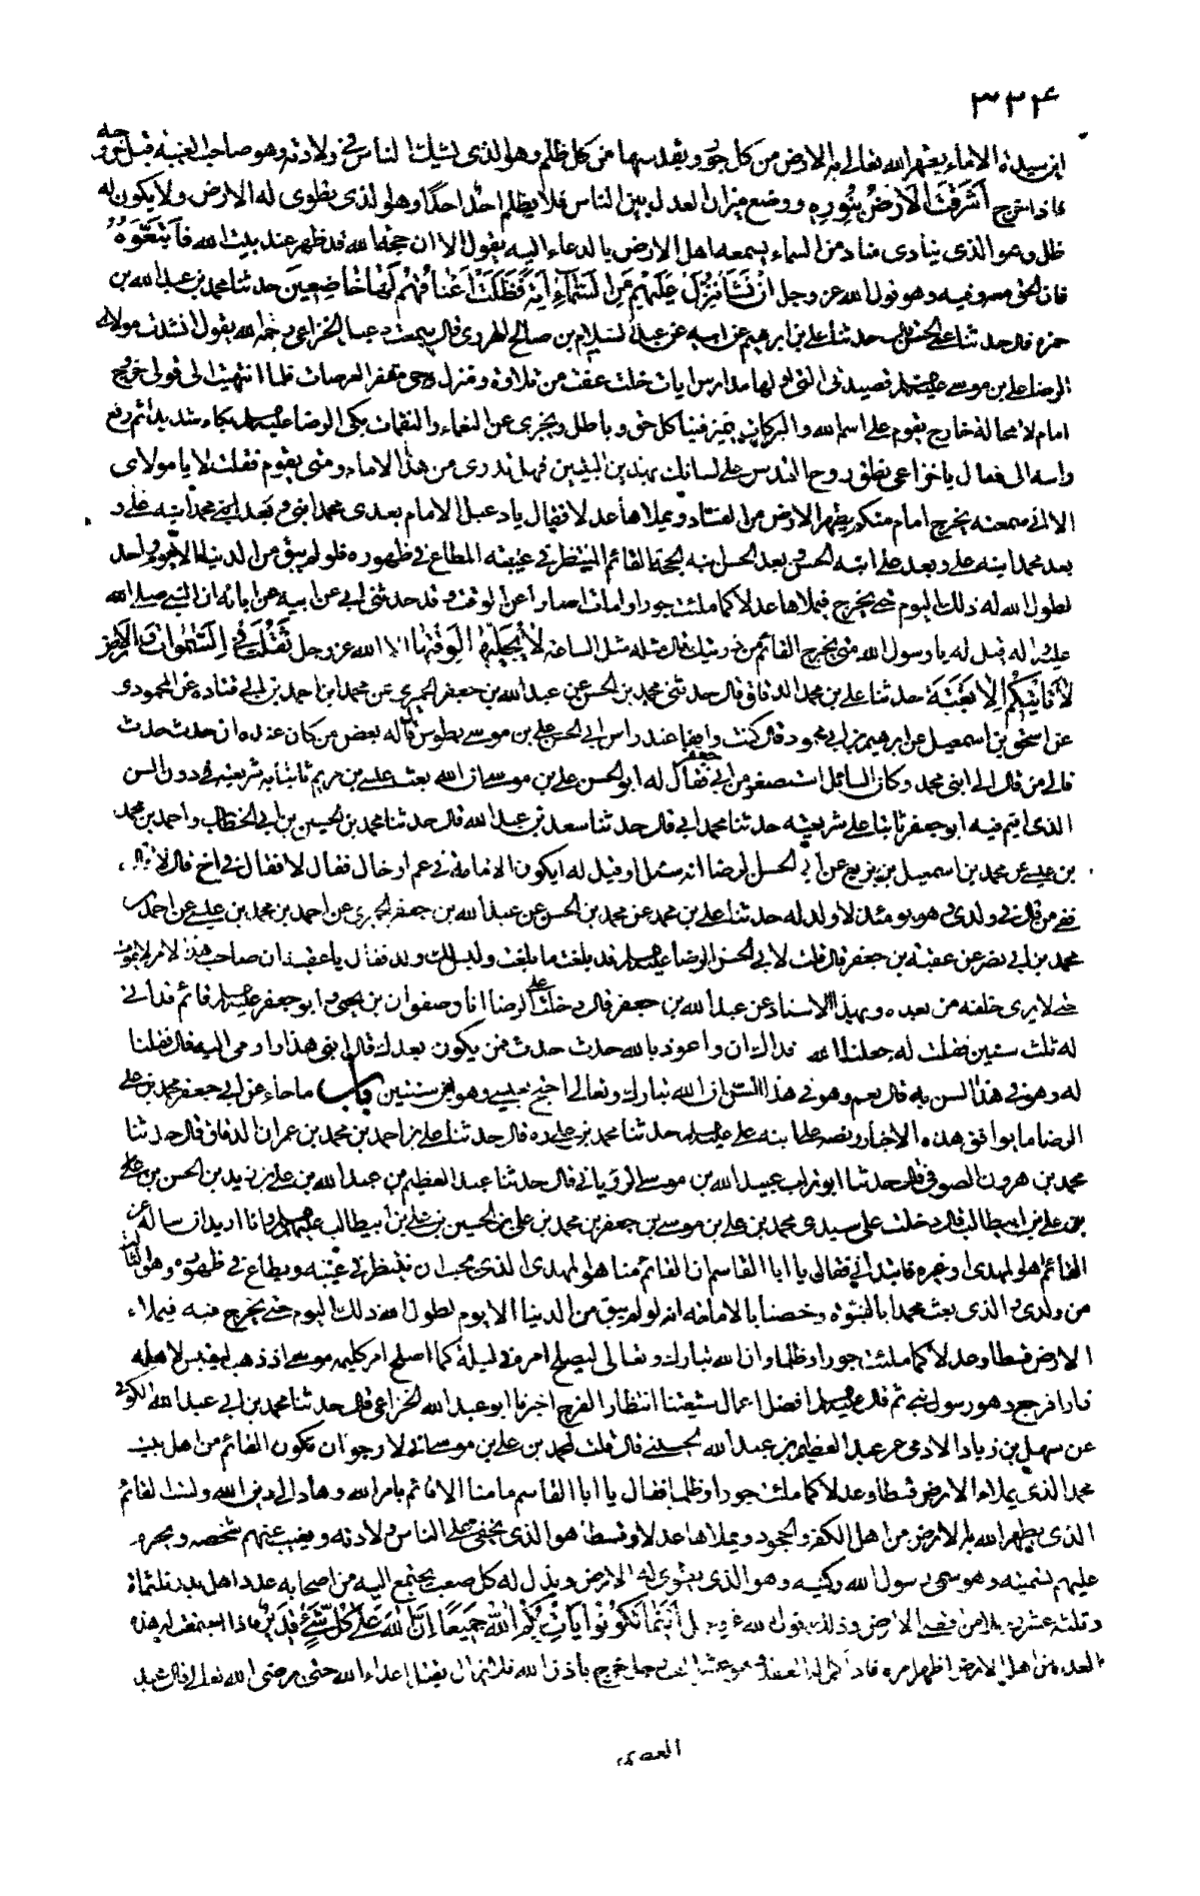 ۳۳۴
ابن سيدة الاماء يطهر الله تعالى به الارض من كل جور ويقدسها من كل ظلم وهو الذى يشك الناس فى ولادته وهو صاحب الغيبة قبل خروجه
فاذا خرج اشرقت الارض بنوره ووضع ميزان العدل بين الناس فلا يظلم احد احدا وهو الذى تطوى له الارض ولا يكون له
ظل وهو الذى ينادى مناد من السماء يسمعه اهل الارض بالدعاء اليه يقول الا ان حجة الله قد ظهر عند بيت الله فاتبعوه
فان الحق معه وفيه وهو قول الله عز وجل ان نشا ننزل عليهم من السماء اية فظلت اعناقهم لها خاضعين حدثنا محمد بن عبد الله بن
حمزه قال حدثنا على بن ابرهيم عن ابيه عن عبد السلام بن صالح الهروى قال سمعت دعبل الخزاعى رحمه الله يقول انشدت مولاى
الرضا على بن موسى عليه السلام قصيدتى التى اولها مدارس ايات خلت عفت من تلاوة ومنزل وحى مقفر العرصات فلما انتهيت الى قولى خروج
امام لا محالة خارج يقوم على اسم الله والبركات يميز فينا كل حق وباطل ويجزى عن النعماء والنقمات بكى الرضا عليه السلام بكاء شديدا ثم رفع
راسه الى فقال يا خزاعى نطق روح القدس على لسانك بهذين البيتين فهل تدرى من هذا الامام ومتى يقوم فقلت لا يا مولاى
الا انى سمعته بخروج امام منكم يطهر الارض من الفساد ويملاها عدلا فقال يا دعبل الامام بعدى محمد ابنى وبعد ابنى محمد ابنه على و
بعد محمد ابنه على وبعد على ابنه الحسن وبعد الحسن ابنه الحجة القائم المنتظر فى غيبته المطاع فى ظهوره فلو لم يبق من الدنيا الا يوم واحد
لطول الله له ذلك اليوم حتى يخرج فيملاها عدلا كما ملئت جورا واما متى اخبار عن الوقت فقد حدثنى ابى عن ابيه عن ابائه ان النبى صلى الله
عليه واله قيل له يا رسول الله متى يخرج القائم من ذريتك قال مثله مثل الساعة لا يجليها لوقتها الا الله عز وجل ثقلت فى السموات والارض
لا تاتيكم الا بغتة حدثنا على بن محمد الدقاق قال حدثنى محمد بن الحسن عن عبد الله بن جعفر الحميرى عن محمد بن احمد بن ابى قتاده عن المحمودى
عن اسحق بن اسمعيل عن ابرهيم بن ابى محمود قال كنت واقفا عند راس ابى الحسن على بن موسى بطوس قال له بعض من كان عنده ان حدث حدث
فالى من قال الى ابنى محمد وكان السائل استصغر سن ابى جعفر فقال له ابو الحسن على بن موسى ان الله بعث عيسى بن مريم ثابتا به شريعته فى دون السن
الذى اقيم فيه ابو جعفر ثابتا على شريعته حدثنا محمد ابى قال حدثنا سعد بن عبد الله قال حدثنا محمد بن الحسين بن ابى الخطاب واحمد بن محمد
بن عيسى عن محمد بن اسمعيل بن بزيع عن ابى الحسن الرضا انه سئل او قيل له ايكون الامامة فى عم او خال فقال لا فقال فى اخ قال لا قال
ففى من قال فى ولدى وهو يومئذ لا ولد له حدثنا على بن محمد عن محمد بن الحسن عن عبد الله بن جعفر الحميرى عن احمد بن محمد بن عيسى عن احمد بن
محمد بن ابى نصر عن عقبة بن جعفر قال قلت لابى الحسن الرضا عليه السلام قد بلغت ما بلغت وليس لك ولد فقال يا عقبة ان صاحب هذا الامر لا يموت
حتى لا يرى خلفه من بعده وبهذا الاسناد عن عبد الله بن جعفر قال دخلت على الرضا انا وصفوان بن يحيى وابو جعفر عليه السلام قائم قد اتى
له ثلث سنين فقلت له جعلنا الله فداك ان واعوذ بالله حدث حدث فمن يكون بعدك قال ابنى هذا واومى اليه قال فقلنا
له وهو فى هذا السن به قال نعم وهو فى هذا السن ان الله تبارك وتعالى احتج بعيسى وهو ابن سنتين باب ما جاء عن ابى جعفر محمد بن على
الرضا ما يوافق هذه الاخبار ونصه على ابنه على عليه السلام حدثنا محمد بن على ره قال حدثنا على بن احمد بن محمد بن عمران الدقاق قال حدثنا
محمد بن هرون الصوفى قال حدثنا ابو تراب عبيد الله بن موسى الرويانى قال حدثنا عبد العظيم بن عبد الله بن على بن زيد بن الحسن بن على
بن على بن ابيطالب قال دخلت على سيدى محمد بن على بن موسى بن جعفر بن محمد بن على بن الحسين بن على بن ابيطالب عليهم السلام وانا اريد ان ساله عن
القائم هو المهدى او غيره فابتدانى فقال يا ابا القاسم ان القائم منا هو المهدى الذى يجب ان ينتظر فى غيبته ويطاع فى ظهوره وهو الثالث
من ولدى والذى بعث محمدا بالنبوة وخصنا بالامامة انه لو لم يبق من الدنيا الا يوم لطول الله ذلك اليوم حتى يخرج فيه فيملاء
الارض قسطا وعدلا كما ملئت جورا وظلما وان الله تبارك وتعالى ليصلح امره فى ليلة كما اصلح امر كليمه موسى اذ ذهب ليقتبس لاهله
نارا فرجع وهو رسول نبى ثم قال عليه السلام افضل اعمال شيعتنا انتظار الفرج اخبرنا ابو عبد الله الخزاعى قال حدثنا محمد بن ابى عبد الله الكوفى
عن سهل بن زياد الادمى عن عبد العظيم بن عبد الله الحسنى قال قلت لمحمد بن على بن موسى انى لارجو ان تكون القائم من اهل بيت
محمد الذى يملاء الارض قسطا وعدلا كما ملئت جورا وظلما فقال يا ابا القاسم ما منا الا قائم بامر الله وهاد الى دين الله ولست القائم
الذى يطهر الله به الارض من اهل الكفر والجحود ويملاها عدلا وقسطا هو الذى يخفى على الناس ولادته ويغيب عنهم شخصه ويحرم
عليهم تسميته وهو سمى رسول الله وكنيه وهو الذى يطوى له الارض ويذل له كل صعب يجتمع اليه من اصحابه عدد اهل بدر ثلثماة
وثلثة عشر رجلا من اقصى الارض وذلك قول الله عز وجل اينما تكونوا يات بكم الله جميعا ان الله على كل شىء قدير فاذا اجتمعت له هذه
العدة من اهل الارض اظهر امره فاذا كمل له العقد وهو عشرة الاف رجل خرج باذن الله فلا يزال يقتل اعداء الله حتى يرضى الله تعالى قال عبد
العظيم